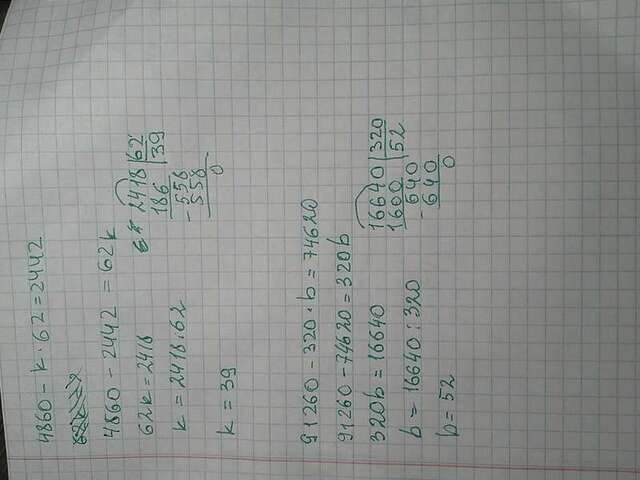 4860 - k · 62 = 2442
4860 - 2442 = 62k
62k = 2418
k = 2418 : 62
k = 39
2418 | 62
186 | 39
- 558
558
0
91260 - 320 · b = 74620
91260 - 74620 = 320b
320b = 16640
b = 16640 : 320
b = 52
16640 | 320
1600 | 52
- 640
640
0